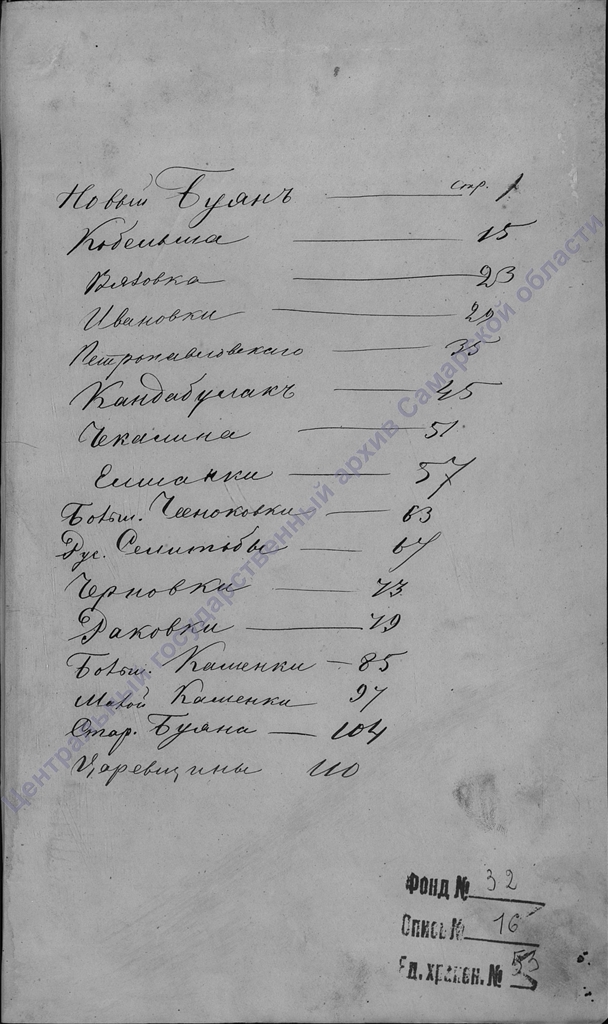 Новый Буянъ — стр. 1
Кобельма — 15
Вязовка — 23
Ивановки — 29
Петропавловскаго — 35
Кандабулакъ — 45
Чекалина — 51
Елшанки — 57
Больш. Чесноковки — 63
Рус. Селитьбы — 67
Черновки — 73
Раковки — 79
Больш. Каменки — 85
Малой Каменки 97
Стар. Буяна — 104
Царевщины 110
Центральный государственный архив Самарской области
Фонд № 32
Опись № 16
Ед. хранен. № 53